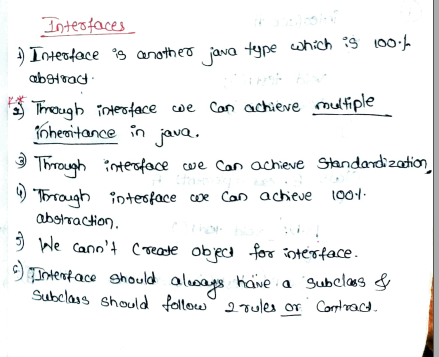 Interfaces
1) Interface is another java type which is 100%
abstract.
2) Through interface we can achieve multiple
inheritance in java.
3) Through interface we can achieve Standardization,
4) Through interface we can achieve 100%
abstraction.
5) We cann't create object for interface.
6) Interface should always have a subclass &
Subclass should follow 2 rules or Contract.